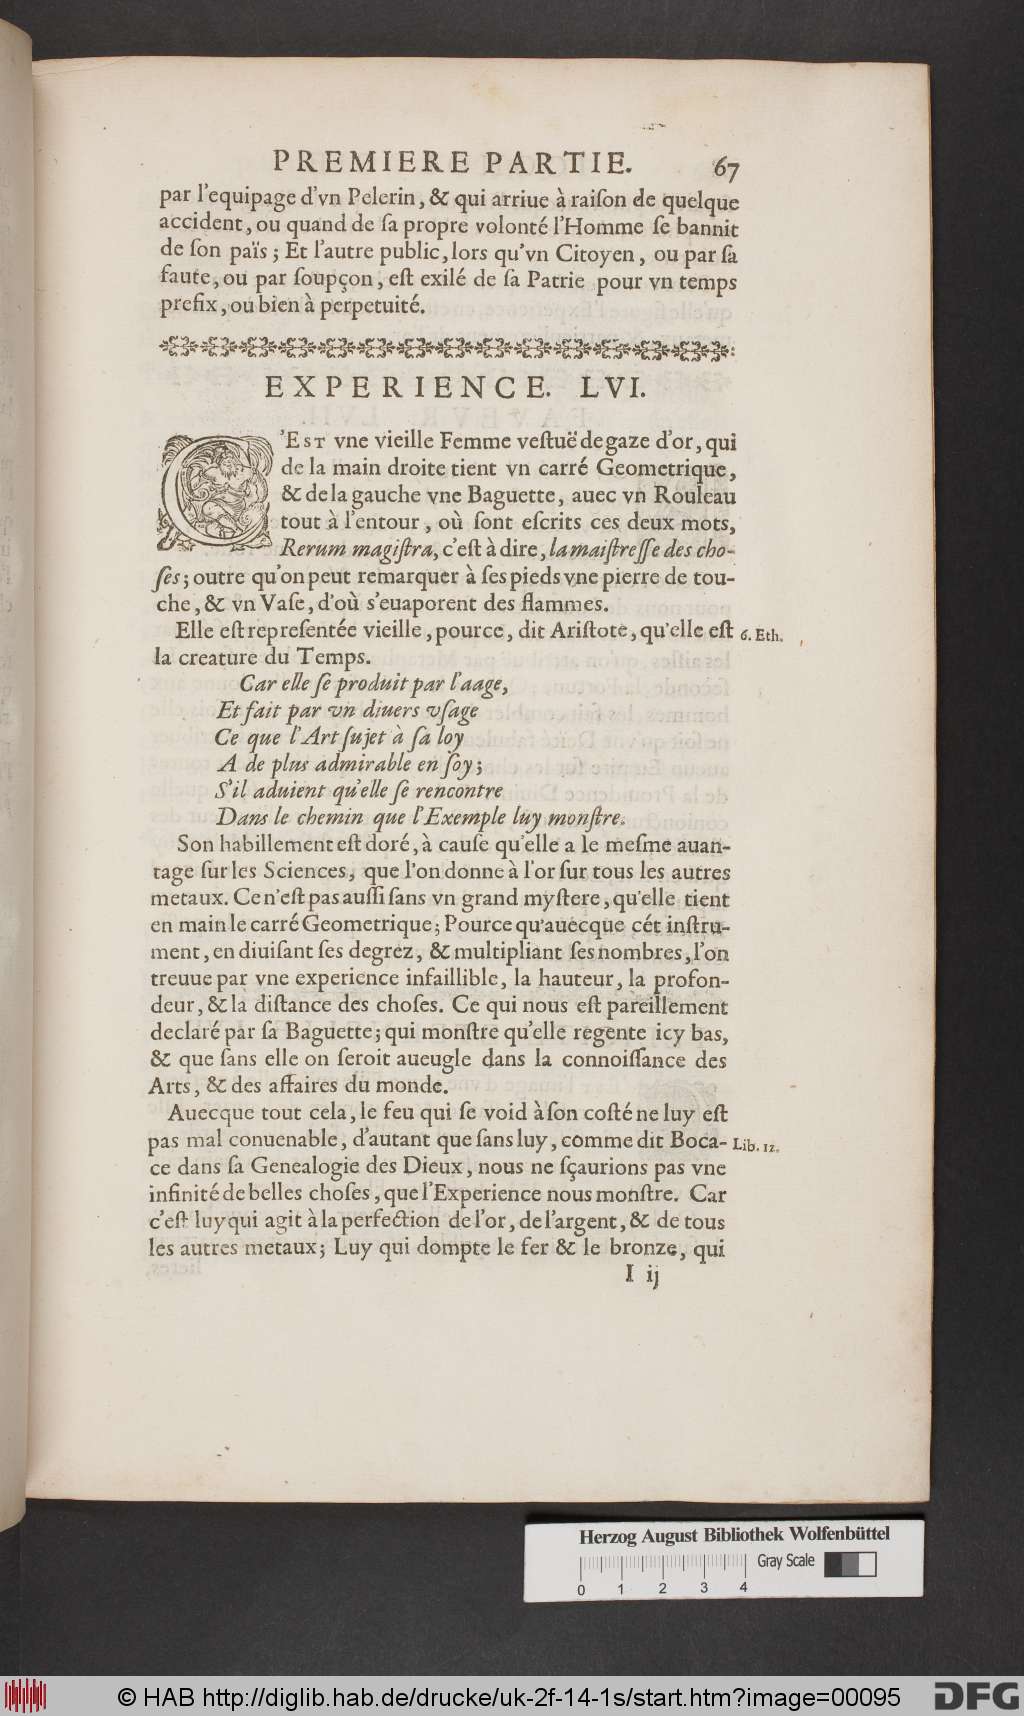 PREMIERE PARTIE. 67
par l'equipage d'vn Pelerin, & qui arriue à raiſon de quelque
accident, ou quand de ſa propre volonté l'Homme ſe bannit
de ſon païs; Et l'autre public, lors qu'vn Citoyen, ou par ſa
faute, ou par ſoupçon, eſt exilé de ſa Patrie pour vn temps
prefix, ou bien à perpetuité.
EXPERIENCE. LVI.
C'EST vne vieille Femme veſtuë de gaze d'or, qui
de la main droite tient vn carré Geometrique,
& de la gauche vne Baguette, auec vn Rouleau
tout à l'entour, où ſont eſcrits ces deux mots,
Rerum magiſtra, c'eſt à dire, la maiſtreſſe des cho-
ſes; outre qu'on peut remarquer à ſes pieds vne pierre de tou-
che, & vn Vaſe, d'où s'euaporent des flammes.
Elle eſt repreſentée vieille, pource, dit Ariſtote, qu'elle eſt 6. Eth.
la creature du Temps.
Car elle ſe produit par l'aage,
Et fait par vn diuers vſage
Ce que l'Art ſujet à ſa loy
A de plus admirable en ſoy;
S'il aduient qu'elle ſe rencontre
Dans le chemin que l'Exemple luy monſtre.
Son habillement eſt doré, à cauſe qu'elle a le meſme auan-
tage ſur les Sciences, que l'on donne à l'or ſur tous les autres
metaux. Ce n'eſt pas auſſi ſans vn grand myſtere, qu'elle tient
en main le carré Geometrique; Pource qu'auecque cét inſtru-
ment, en diuiſant ſes degrez, & multipliant ſes nombres, l'on
treuue par vne experience infaillible, la hauteur, la profon-
deur, & la diſtance des choſes. Ce qui nous eſt pareillement
declaré par ſa Baguette; qui monſtre qu'elle regente icy bas,
& que ſans elle on ſeroit aueugle dans la connoiſſance des
Arts, & des affaires du monde.
Auecque tout cela, le feu qui ſe void à ſon coſté ne luy eſt
pas mal conuenable, d'autant que ſans luy, comme dit Boca- Lib. 12.
ce dans ſa Genealogie des Dieux, nous ne ſçaurions pas vne
infinité de belles choſes, que l'Experience nous monſtre. Car
c'eſt luy qui agit à la perfection de l'or, de l'argent, & de tous
les autres metaux; Luy qui dompte le fer & le bronze, qui
I ij
Herzog August Bibliothek Wolfenbüttel
Gray Scale
0 1 2 3 4
© HAB http://diglib.hab.de/drucke/uk-2f-14-1s/start.htm?image=00095
DFG